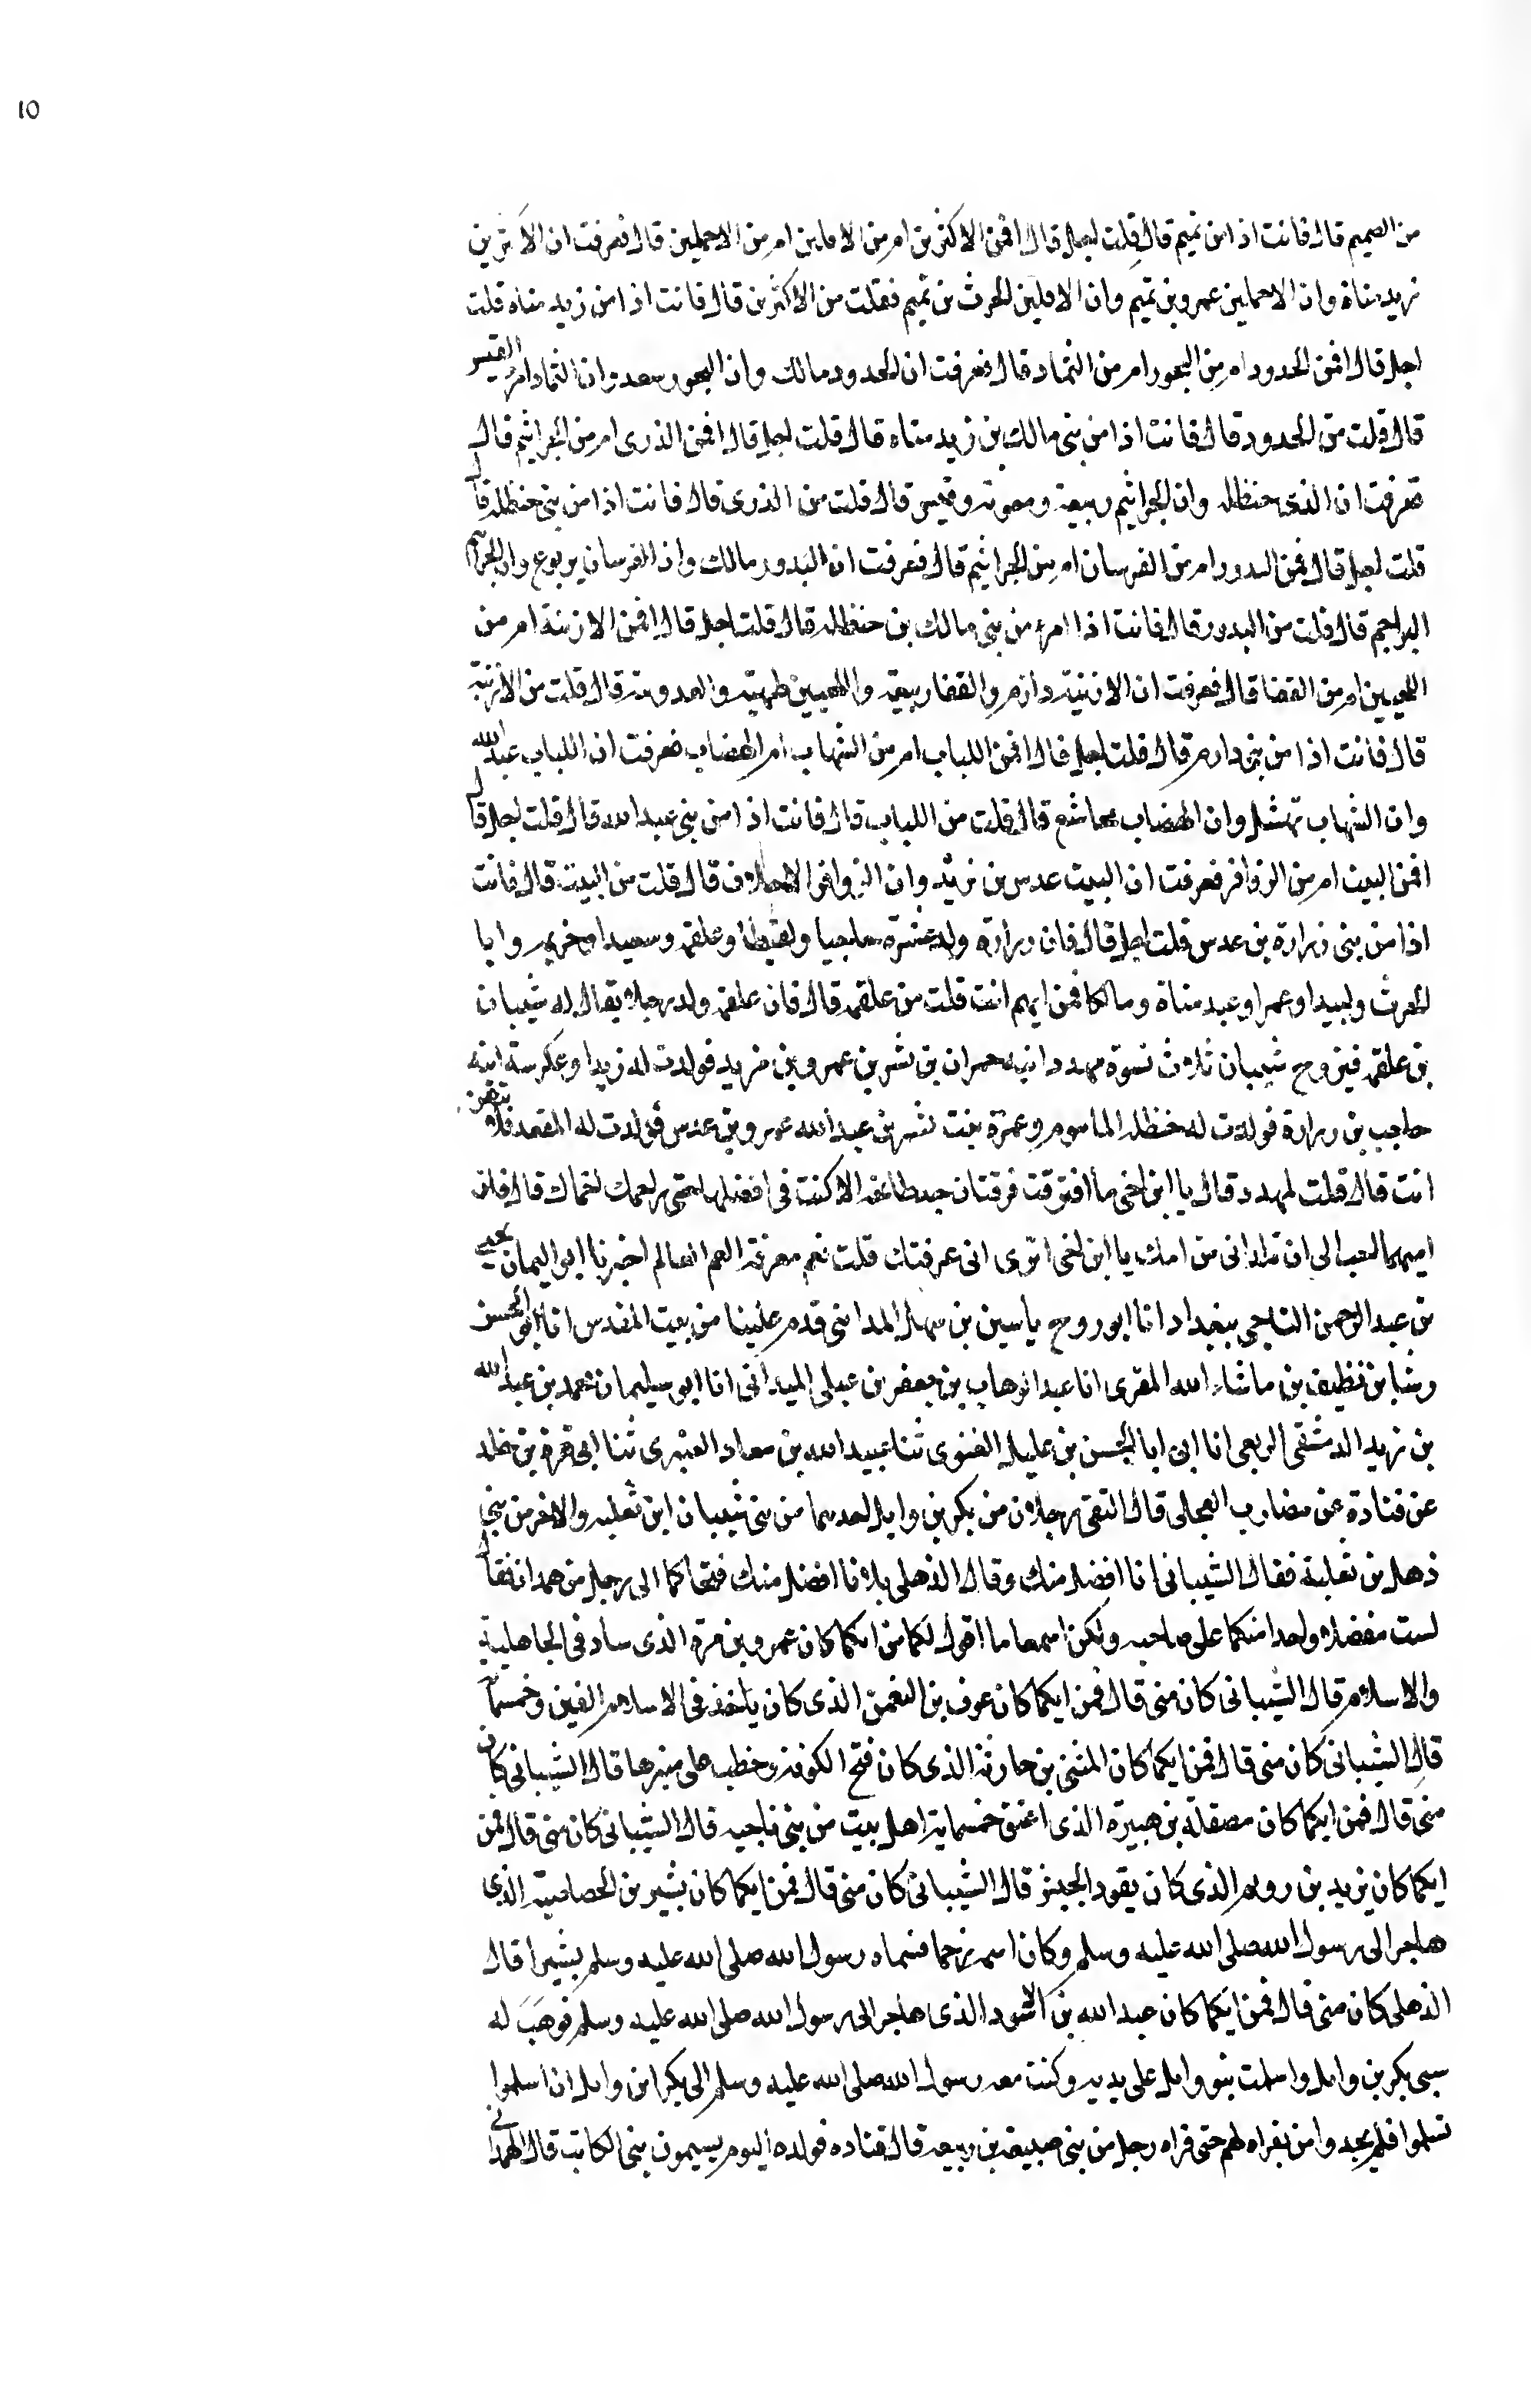 10
من الصميم قال فانت اذا من تميم قال قلت اجل قال افمن الاكثرين ام من الاقلين ام من الاحملين قال فعرفت ان الاكثرين
زيد مناة وان الاحملين عمرو بن تميم وان الاقلين الحرث بن تميم فقلت من الاكثرين قال فانت اذا من زيد مناه قلت
اجل قال افمن الحدود ام من البحور ام من الثماد قال فعرفت ان الحدود مالك وان البحور سعد وان الثماد امرء القيس
قال قلت من الحدود قال فانت اذا من بنى مالك بن زيد مناه قال قلت اجل قال افمن الذرى ام من الجراثيم قال
فعرفت ان الذرى حنظله وان الجراثيم ربيعة ومعويه وقيس قال قلت من الذرى قال فانت اذا من بنى حنظله قال
قلت اجل قال فمن البدور ام من الفرسان ام من الجراثيم قال فعرفت ان البدور مالك وان الفرسان يربوع وان الجراثيم
البراجم قال قلت من البدور قال فانت اذا امرء من بنى مالك بن حنظله قال قلت اجل قال افمن الارنبة ام من
اللحيين ام من القفا قال فعرفت ان الارنبة دارم والقفا ربيعة واللحيين طهية والعدوية قال قلت من الارنبة
قال فانت اذا من بنى دارم قال قلت اجل قال افمن اللباب ام من الشهاب ام الهضاب فعرفت ان اللباب عبد الله
وان الشهاب نهشل وان الهضاب مجاشع قال قلت من اللباب قال فانت اذا من بنى عبد الله قال قلت اجل قال
افمن البيت ام من الزوافر فعرفت ان البيت عدس بن زيد وان الزوافر الاحلاف قال قلت من البيت قال فانت
اذا من بنى زرارة بن عدس قلت اجل قال فان زرارة ولد عشرة حاجبا ولقيطا وعلقمه وسعيدا وخزيمه وابا
الحرث ولبيدا وعمرا وعبد مناة ومالكا فمن ايهم انت قلت من علقمه قال فان علقمه ولد رجلا يقال له شيبان
بن علقمه فتزوج شيبان ثلاث نسوة مهدد ابنه حمران بن بشر بن عمرو بن مزيد فولدت له زيدا وعكرسة ابنه
حاجب بن زرارة فولدت له حنظله الماموم وعمرة بنت بشر بن عبد الله عمرو بن عدس فولدت له المقعد فلايتهن
انت قال قلت لمهدد قال يا ابن اخى ما افترقت فرقتان بعد طائفه الا كنت فى افضلها حتى زاحمك اخواك قال فان
اميهما احب الى ان تلدانى من امك يا ابن اخى اترى انى عرفتك قلت نعم معرفة العم العالم اخبرنا ابو اليمان يحيى
بن عبد الرحمن الناجى ببغداد انا ابو روح ياسين بن سهل المدائنى قدم علينا من بيت المقدس انا ابو الحسن
رشا بن نظيف بن ماشاء الله المقرى انا عبد الوهاب بن جعفر بن على الميدانى انا ابو سليمان محمد بن عبد الله
بن زيد الدمشقى الربعى انا ابى ابا الحسن بن عليل الغنوى ثنا عبيد الله بن معاد العنبرى ثنا ابى قرة بن خلد
عن قتادة عن مضارب العجلى قال التقى رجلان من بكر بن وايل احدهما من بنى شيبان ابن ثعلبه والاخر من بنى
ذهل بن ثعلبة فقال الشيبانى انا افضل منك وقال الذهلى بل انا افضل منك فتحاكما الى رجل من همدان فقال
لست مفضلا واحدا منكما على صاحبه ولكن اسمعا ما اقول لكما من ايكما كان عمرو بن مرة الذى ساد فى الجاهلية
والاسلام قال الشيبانى كان منى قال فمن ايكما كان عوف بن النعمن الذى كان ياخذ فى الاسلام الفين وخمسمائة
قال الشيبانى كان منى قال فمن ايكما كان المثنى بن حارثة الذى كان فتح الكوفة وخطب على منبرها قال الشيبانى كان
منى قال فمن ايكما كان مصقلة بن هبيرة الذى اعتق خمسماية اهل بيت من بنى ناجيه قال الشيبانى كان منى قال فمن
ايكما كان يزيد بن رويم الذى كان يقود الجيش قال الشيبانى كان منى قال فمن ايكما كان بشير بن الخصاصية الذى
هاجر الى رسول الله صلى الله عليه وسلم وكان اسمه زحما فسماه رسول الله صلى الله عليه وسلم بشيرا قال
الذهلى كان منى قال فمن ايكما كان عبد الله بن الاسود الذى هاجر الى رسول الله صلى الله عليه وسلم فوهب له
سبى بكر بن وايل واسلمت بنو وايل على يديه وكتب معه رسول الله صلى الله عليه وسلم الى بكر ابن وايل ان اسلموا
تسلموا فلم يجدوا من يقراه لهم حتى قراه رجل من بنى ضبيعة بن ربيعه قال قتاده فولده اليوم يسيمون بنى الكاتب قال الهمدانى